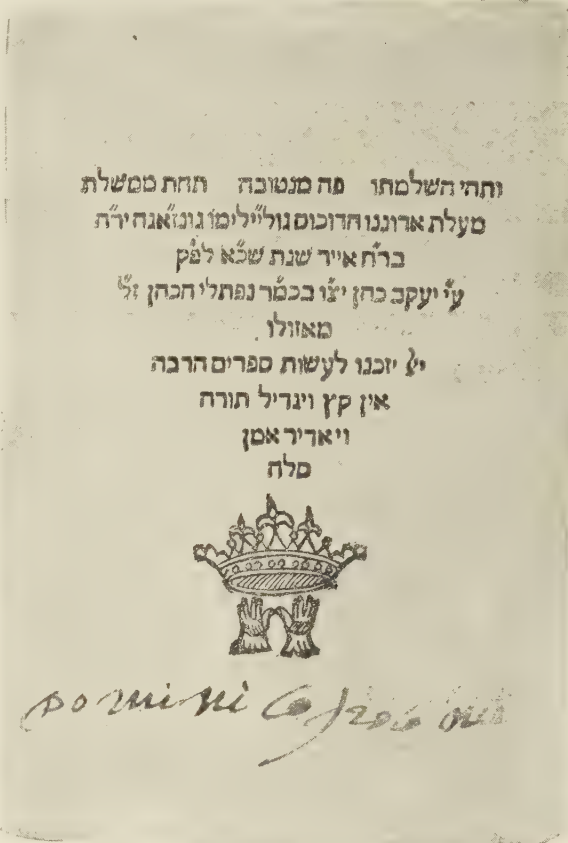 ותהי השלמתו פה מנטובה תחת ממשלת
מעלת אדוננו הדוכוס גוליילימו גונזאגה יר״ה
בר״ח אייר שנת שכ״א לפ״ק
ע״י יעקב כהן יצ״ו בכמ״ר נפתלי הכהן ז״ל
מאזולו
יזכנו לעשות ספרים הרבה
אין קץ ויגדיל תורה
ויאדיר אמן
סלה